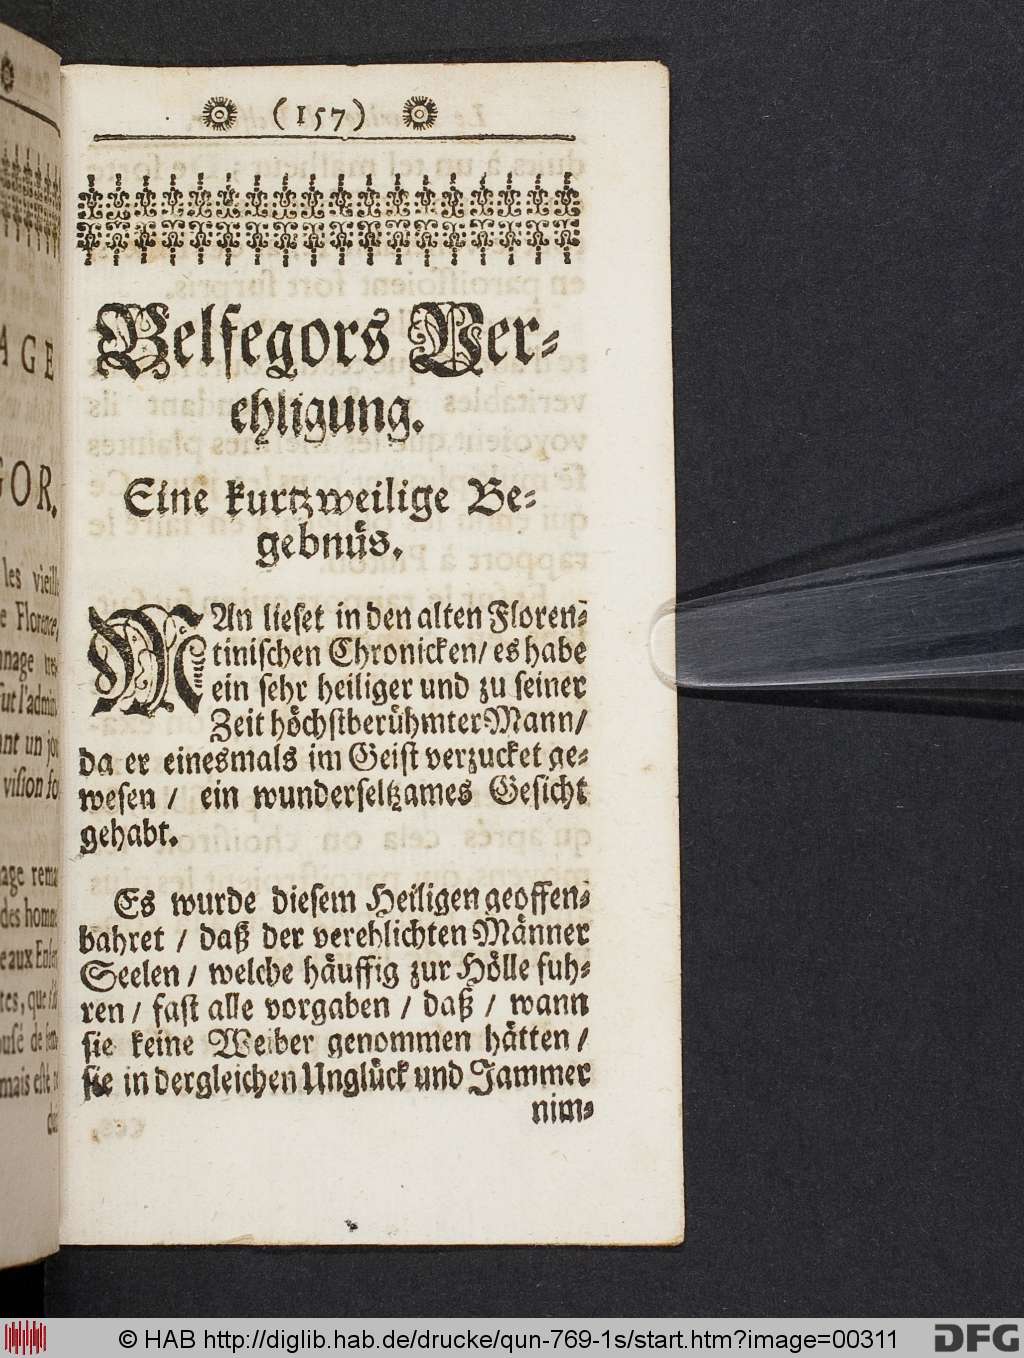 (157)
Belfegors Ver-
ehligung.
Eine kurtzweilige Be-
gebnüs.
MAn lieset in den alten Floren-
tinischen Chronicken / es habe
ein sehr heiliger und zu seiner
Zeit höchstberühmter Mann /
da er einesmals im Geist verzucket ge-
wesen / ein wunderseltzames Gesicht
gehabt.
Es wurde diesem Heiligen geoffen-
bahret / daß der verehlichten Männer
Seelen / welche häuffig zur Hölle fuh-
ren / fast alle vorgaben / daß / wann
sie keine Weiber genommen hätten /
sie in dergleichen Unglück und Jammer
nim-
AGE
GOR.
les vieill
e Florence,
nnage
ant un jo
vision fo
age rema
des homm
e aux Enfer
© HAB http://diglib.hab.de/drucke/qun-769-1s/start.htm?image=00311
DFG